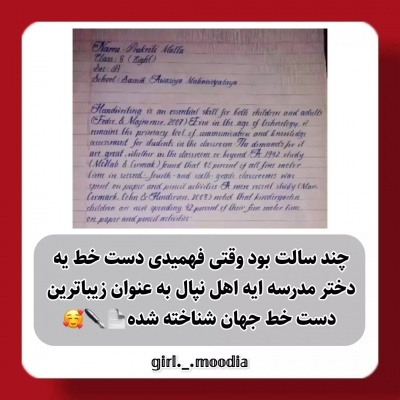 Name: Prakriti Malla
Class: 8 (Eight)
Sec: 'B'
School: Sainik Awasiya Mahavidyalaya
Handwriting is an essential skill for both children and adults
(Feder & Majnemer, 2007). Even in the age of technology, it
remains the primary tool of communication and knowledge
assessment for students in the classroom. The demands for it
are great, whether in the classroom or beyond. A 1992 study
(McHale & Cermak) found that 85 percent of all fine motor
time in second- fourth- and sixth-grade classrooms was
spent on paper and pencil activities. A more recent study (Marr,
Cermak, Cohn & Henderson, 2003) noted that kindergarten
children are now spending 42 percent of their fine motor time
on paper and pencil activities.
چند سالت بود وقتی فهمیدی دست خط یه
دختر مدرسه ایه اهل نپال به عنوان زیباترین
دست خط جهان شناخته شده
girl._.moodia